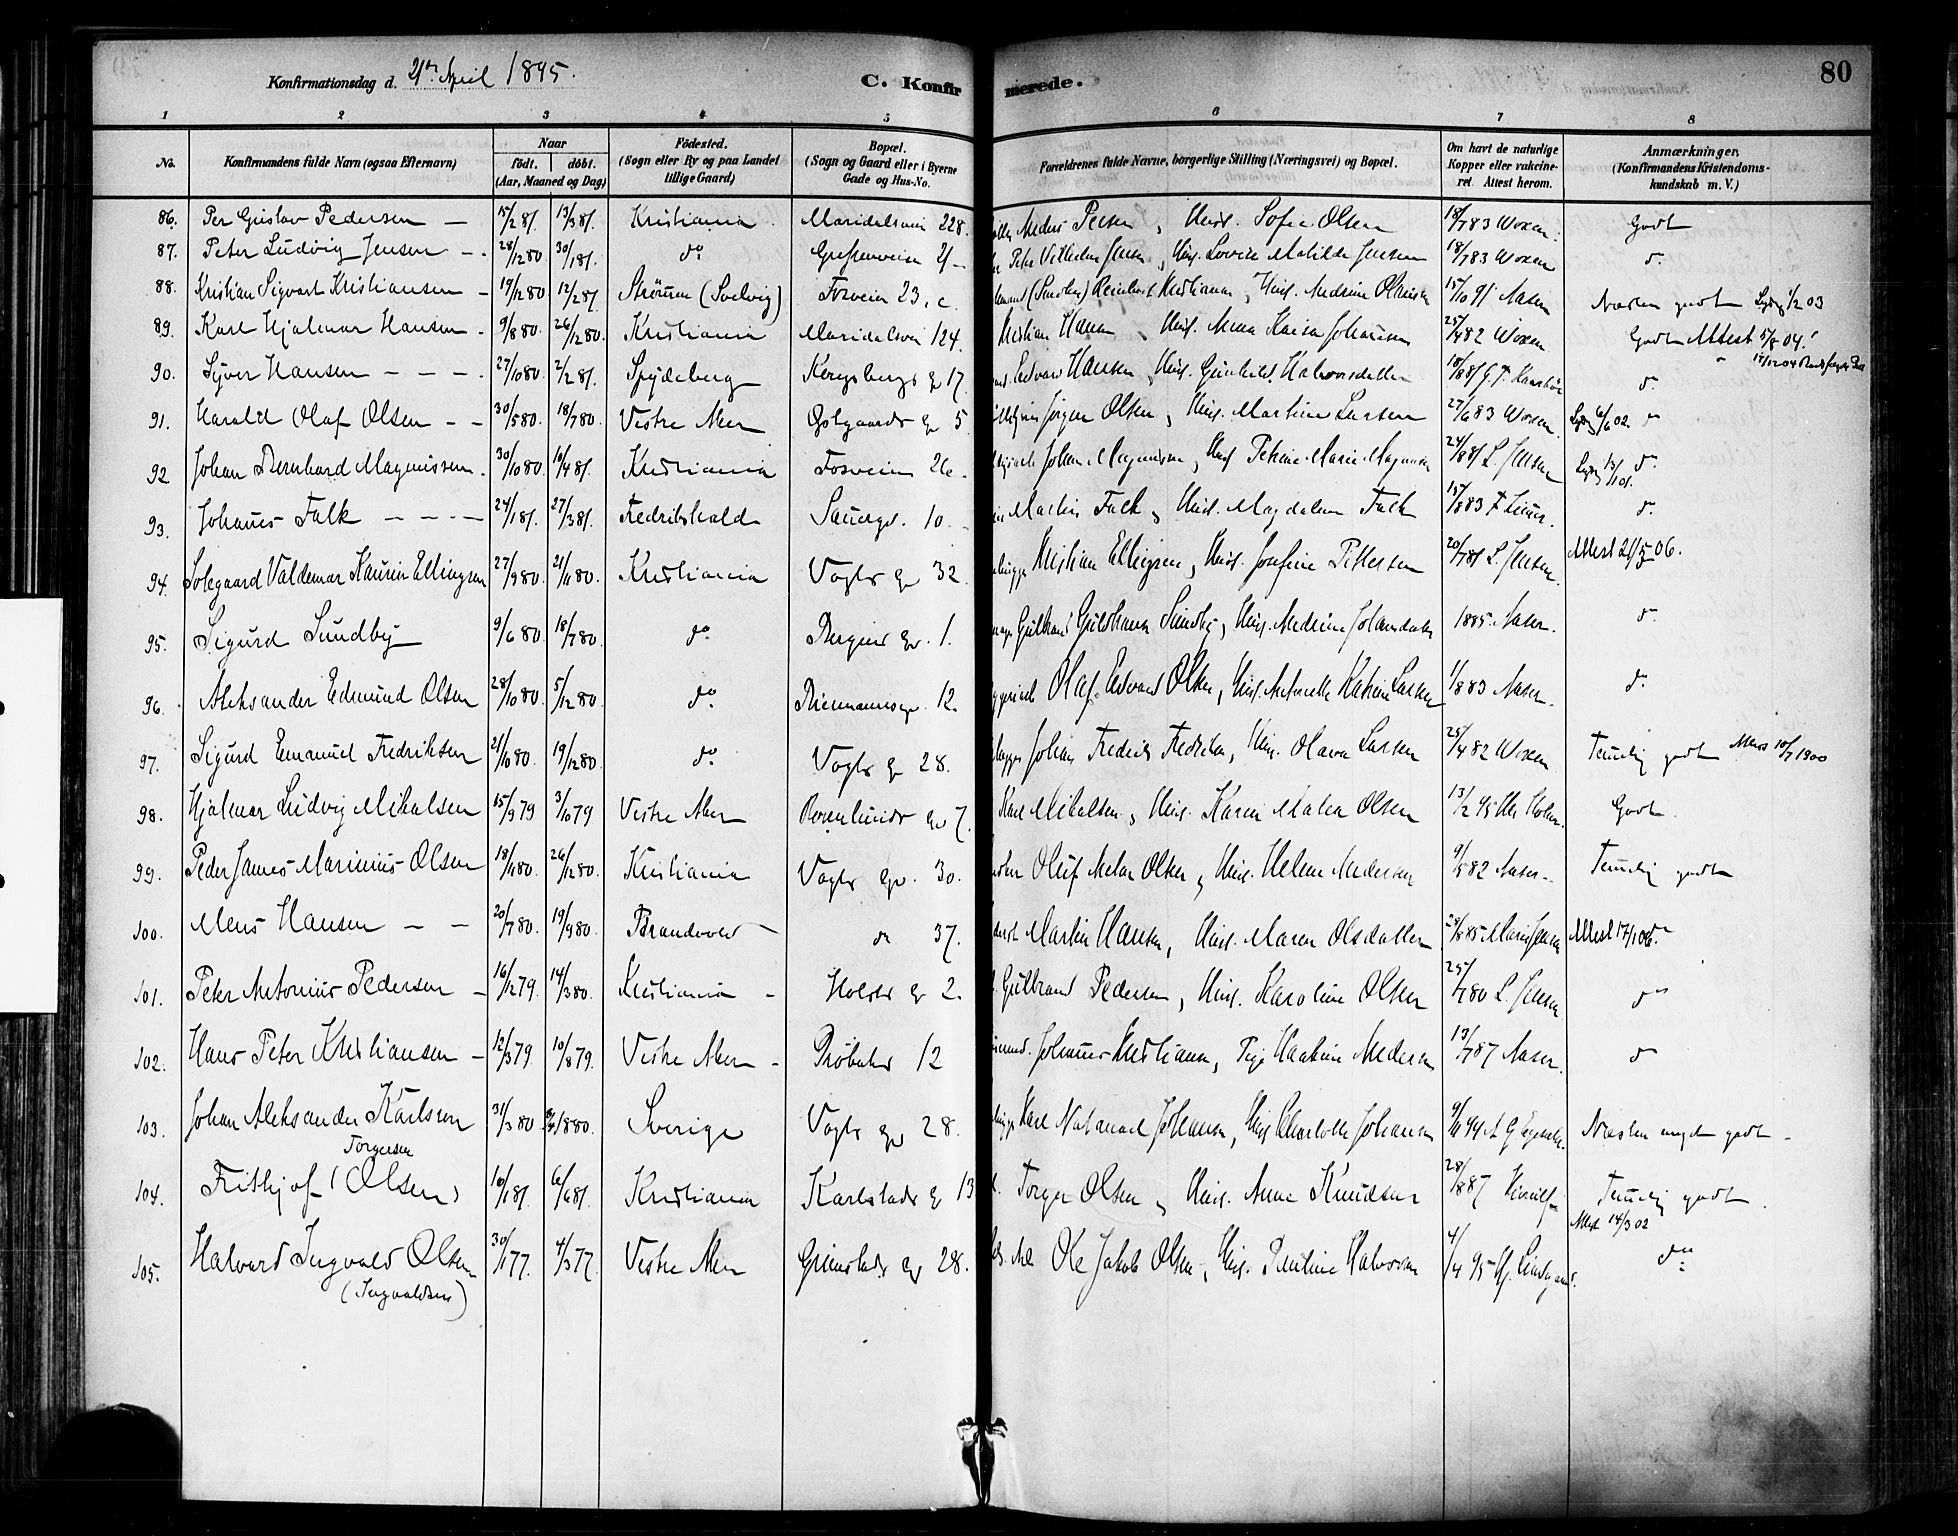 Konfirmationsdag d. 21de April 1895.
C. Konfirmerede.
80
1 2 3 4 5 6 7 8
No. Konfirmandens fulde Navn (ogsaa Efternavn) Naar født. døbt. (Aar, Maaned og Dag) Fødested. (Sogn eller By og paa Landet tillige Gaard) Bopæl. (Sogn og Gaard eller i Byerne Gade og Hus-No. Forældrenes fulde Navne, borgerlige Stilling (Næringsvei) og Bopæl. Om havt de naturlige Kopper eller vakcineret. Attest herom. Anmærkninger. (Konfirmandens Kristendomskundskab m. V.)
86. Per Gustav Pedersen — 15/2 81. 13/3 81. Kristiania Maridalsvein 228. Anders Persen, Hust. Sofie Olsen 18/7 83 Woxen. Godt
87. Peter Ludvig Jensen — 28/12 80 30/1 81. do Grefsenveien 21 Peter Vilhelm Jensen, Hust. Lovise Matilde Jensen 18/7 83 Woxen do
88. Kristian Sigvart Kristiansen — 19/12 80 12/2 81. Strømm (Svelvig) Fosveien 23. c. (Sundby) Reinhart Kristiansen, Hust. Andrine Olausen 15/10 91 Aasen Næsten godt 1/2 03
89. Karl Hjalmar Hansen — 9/8 80. 26/12 80. Kristiania Maridalsvei 124. Kristian Hansen, Hust. Anna Kaisa Johansen 25/4 82 Woxen Godt Attest 5/8 04.
90. Syver Hansen — — — 27/10 80. 2/2 81. Spydeberg Kongsbergs g 17. Edvard Hansen, Hust. Gunhild Halvorsdatter 18/8 81 do
91. Harald Olaf Olsen — — 30/5 80. 18/7 80. Vestre Aker Østgaards g 5. Jørgen Olsen, Hust. Martine Larsen 27/6 83 Woxen. 6/6 02. do
92 Johan Bernhard Magnussen. 30/10 80. 10/4 81. Kristiania Fosveien 26. Johan Magnussen, Hust. Petrine Marie Magnussen 24/8 81 L. Jensen 13/10 01. do
93. Johannes Falk — — — 24/1 81. 27/3 81. Fredrikshald Sannerg. 10. Martin Falk, Hust. Magdalena Falk 15/8 83 do
94. Solegaard Valdemar Kaurin Ellingsen 27/9 80. 21/11 80. Kristiania Vogts g 32. Kristian Ellingsen, Hust. Josefine Pettersen 20/7 81 L. Jensen. Attest 21/5 06.
95. Sigurd Sundby 9/6 80. 18/7 80. do Bergens g. 1. Gulbrand Guldhansen Sundby, Hust. Andrine Johansdatter 1885 Aasen. do
96. Aleksander Edmund Olsen 28/10 80. 5/12 80. do Biermannsg. 12. Olaf Edvard Olsen, Hust. Antonette Katrine Larsen 1/8 83 Aasen. do
97. Sigurd Emanuel Fredriksen 21/10 80. 19/12 80. do Vogts g 28. Johan Fredrik Fredriksen, Hust. Olava Larsen 25/4 82 Woxen Temelig godt Attest 10/7 1900
98. Hjalmar Ludvig Mikalsen 15/9 79 3/10 79 Vestre Aker Rosenlunds g 7. Karl Mikalsen, Hust. Karen Malen Olsen 13/2 95 Godt.
99. Peder James Marinius Olsen 18/11 80. 26/12 80. Kristiania Vogts g. 30. Oluf Anton Olsen, Hust. Helene Andersen 9/5 82 Aasen Temelig godt
100. Mens Hansen — — 20/7 80. 19/9 80. Brandvold do 37. Martin Hansen, Hust. Maren Olsdatter 28/8 85 Marie Jensen Attest 17/1 06. do
101. Peter Antonius Pedersen — 16/12 79. 14/3 80. Kristiania Holsts g 2. Gulbrand Pedersen, Hust. Karoline Olsen 25/7 80 L. Jensen do
102. Hans Peter Kristiansen — 12/3 79. 10/8 79. Vestre Aker Brøbaks 12 Johannes Kristiansen, Pige Haakine Andersen 13/7 87 Aasen. do
103. Johan Aleksander Karlsson 31/3 80 1880. Sverige Vogts g 28. Karl Natanael Johansen, Hust. Charlotte Johansen 9/11 94 Næsten meget godt
104. Frithjof (Olsen) Torgersen 16/1 81. 6/6 81. Kristiania Karlstads g 13 Torger Olsen, Hust. Anne Knudsen 28/8 87 Temelig godt.
105. Halvard Ingvald Olsen 30/1 77. 4/3 77. Vestre Aker Grimstads g 28. Ole Jakob Olsen, Hust. Pauline Halvorsen 4/4 95 Hj. Lindgaard. Attest 14/3 02 do
(Ingvaldsen)